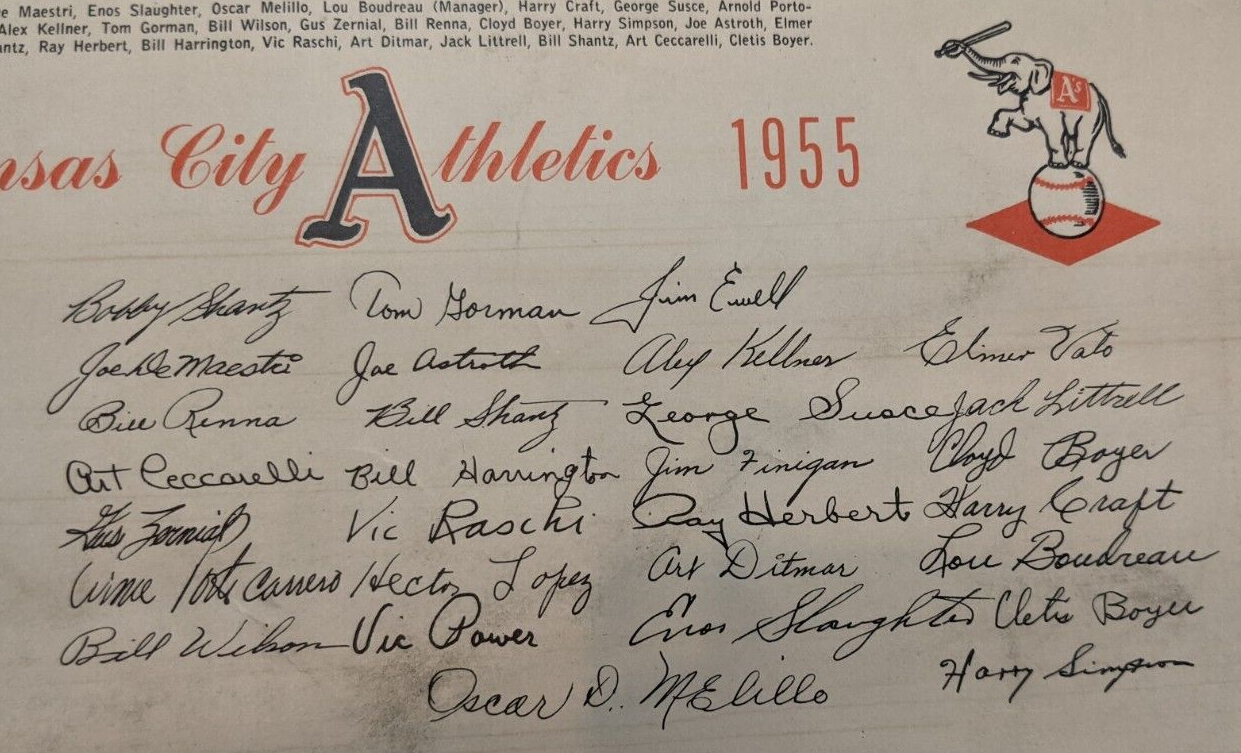 e Maestri, Enos Slaughter, Oscar Melillo, Lou Boudreau (Manager), Harry Craft, George Susce, Arnold Porto-
Alex Kellner, Tom Gorman, Bill Wilson, Gus Zernial, Bill Renna, Cloyd Boyer, Harry Simpson, Joe Astroth, Elmer
antz, Ray Herbert, Bill Harrington, Vic Raschi, Art Ditmar, Jack Littrell, Bill Shantz, Art Ceccarelli, Cletis Boyer.
A's
nsas City Athletics 1955
Bobby Shantz Tom Gorman Jim Ewell
Joe DeMaestri Joe Astroth Alex Kellner Elmer Valo
Bill Renna Bill Shantz George Susce Jack Littrell
Art Ceccarelli Bill Harrington Jim Finigan Cloyd Boyer
Gus Zernial Vic Raschi Ray Herbert Harry Craft
Arnie Portocarrero Hector Lopez Art Ditmar Lou Boudreau
Bill Wilson Vic Power Enos Slaughter Cletis Boyer
Oscar D. Melillo Harry Simpson